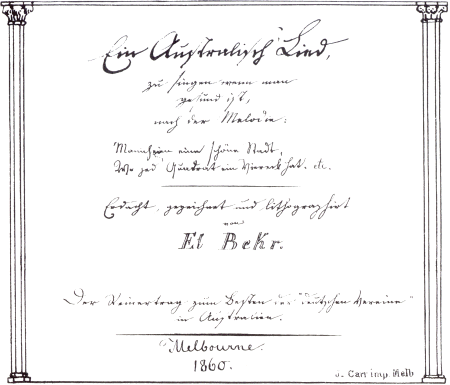 Ein Australisch Lied,
zu singen wenn man
gesund ist,
nach der Melodie:
Mannheim eine schöne Stadt,
Wo jed' Quadrat ein Viereck hat. etc.
Erdacht, gezeichnet und lithographirt
von
El Bekr.
Der Reinertrag zum Besten der "deutschen Vereine"
in Australien.
Melbourne.
1860.
Carl imp. Melb